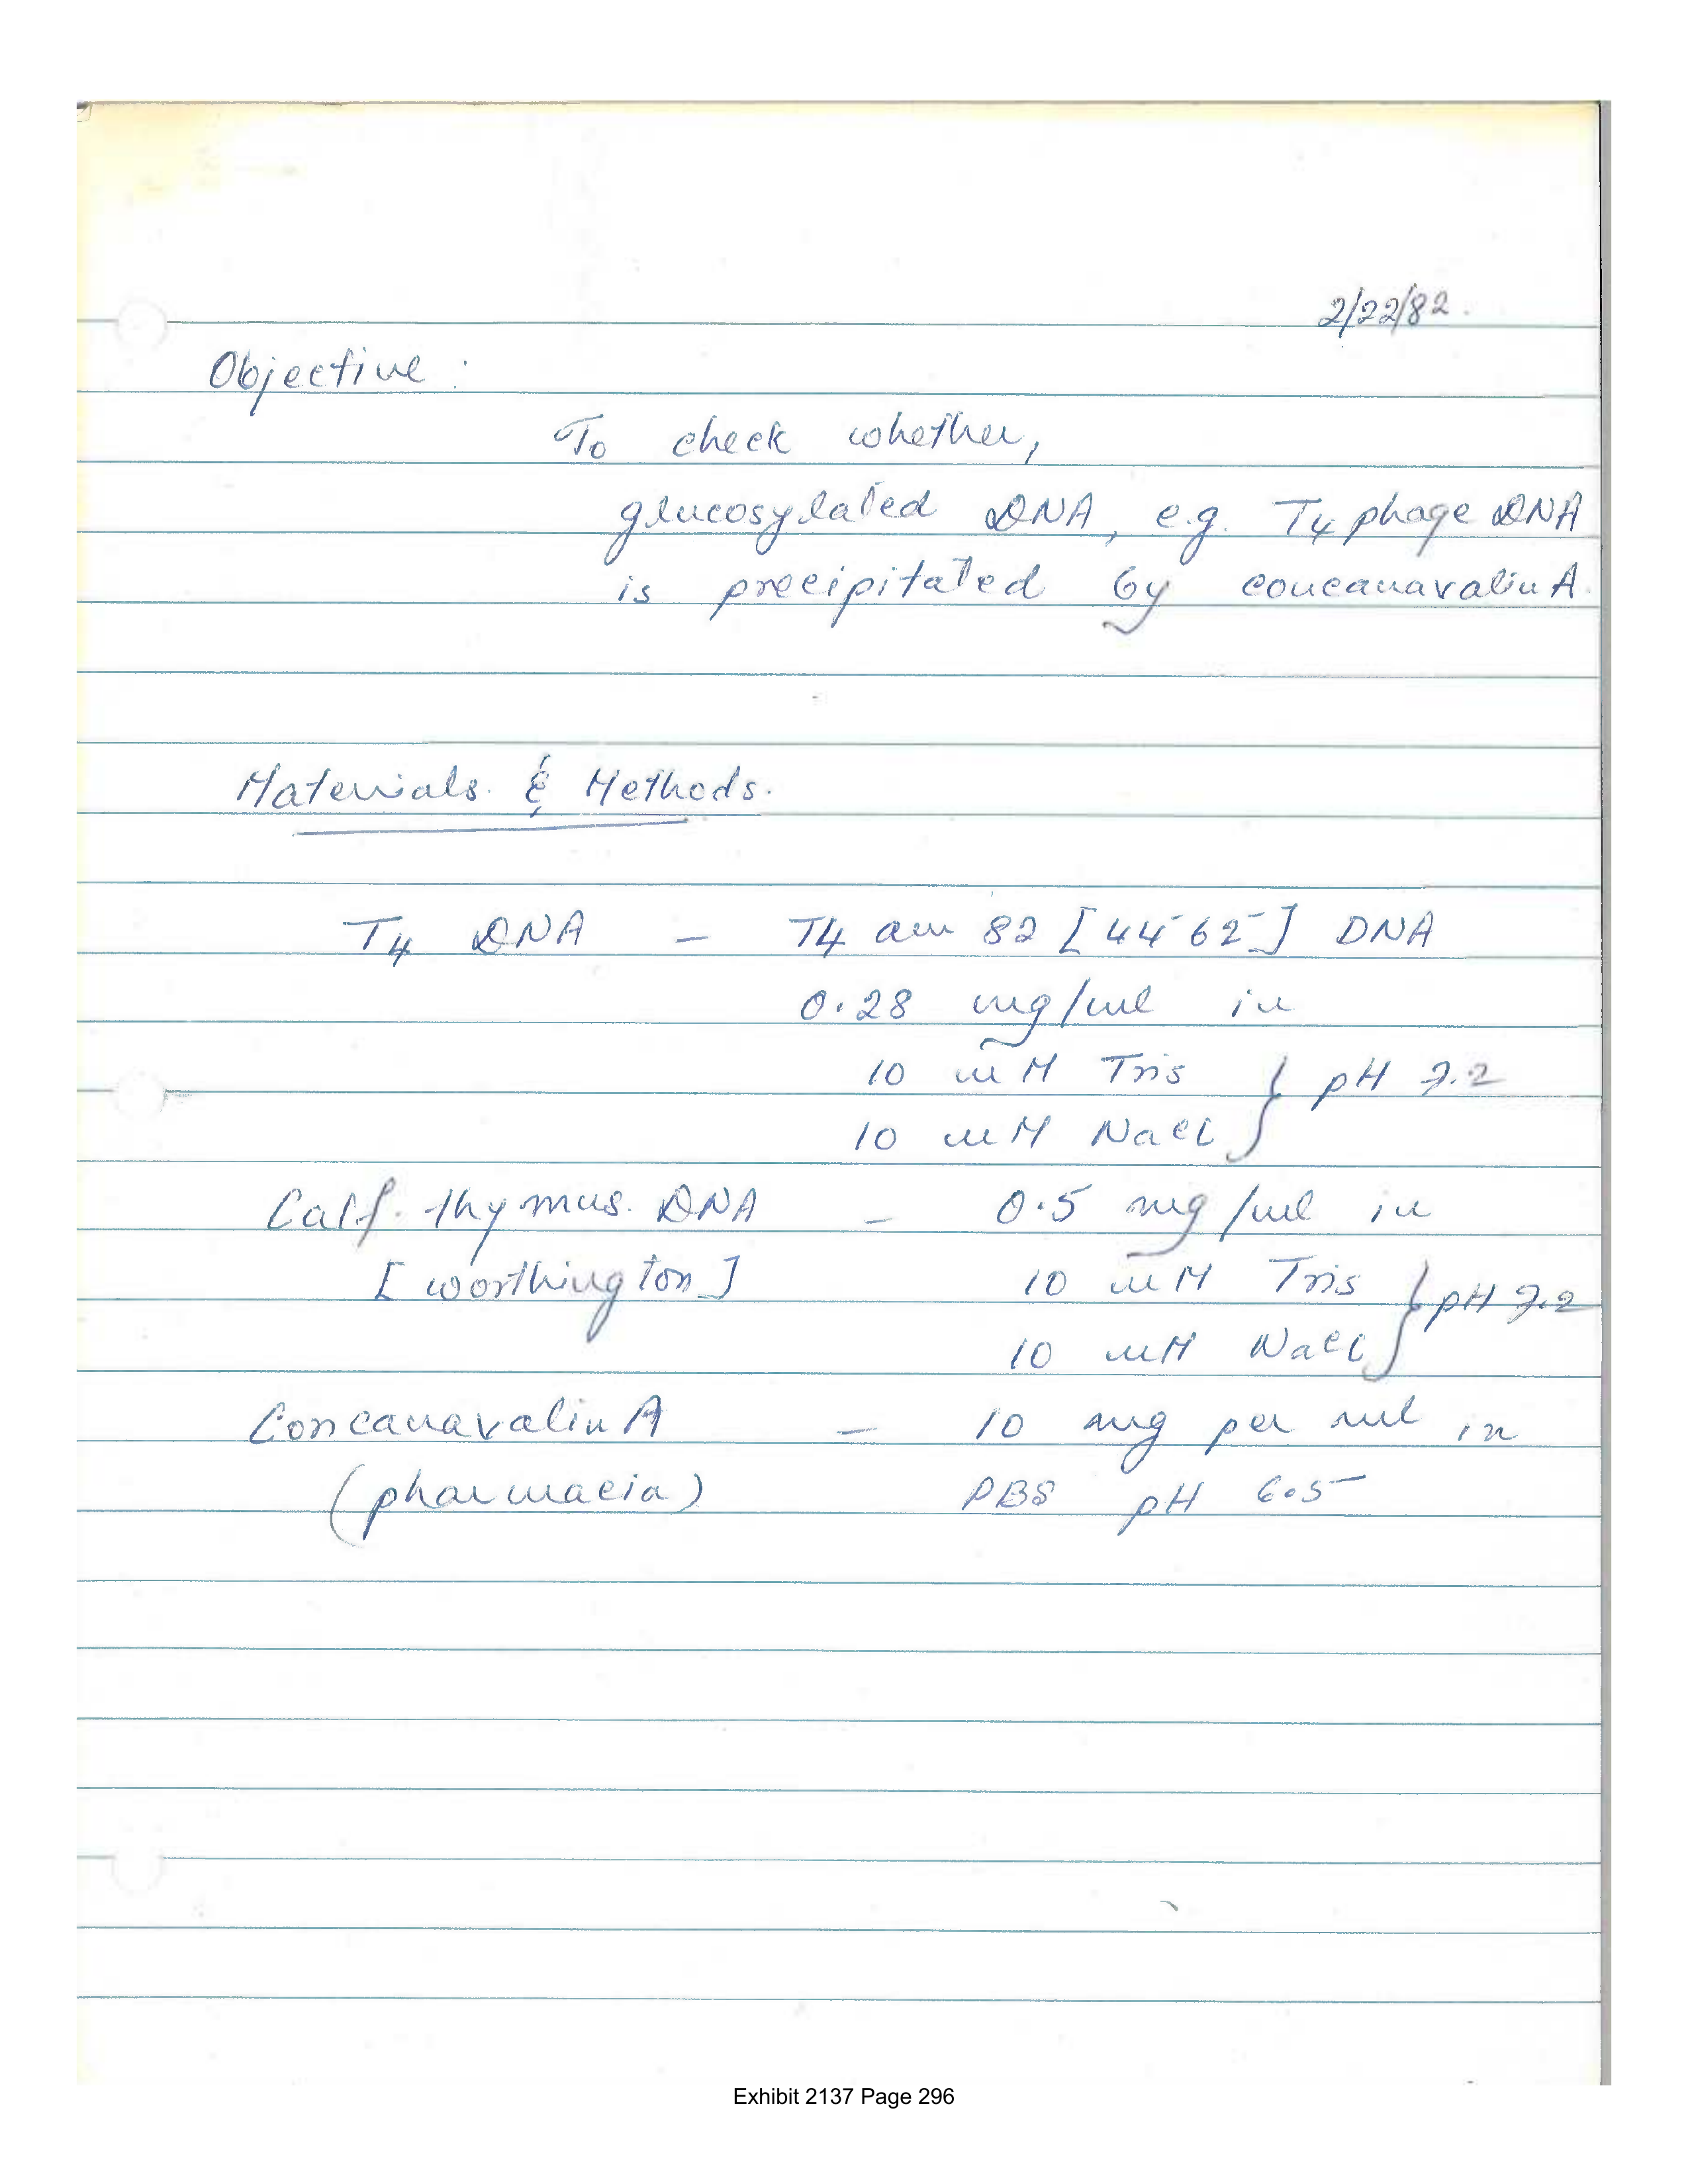 2/22/82.
Objective :
To check whether,
glucosylated DNA, e.g. T4 phage DNA
is precipitated by concanavalin A.
Materials & Methods.
T4 DNA — T4 am 82 [44⁻ 62⁻] DNA
0.28 mg/ml in
10 mM Tris } pH 7.2
10 mM NaCl
Calf. thymus. DNA — 0.5 mg/ml in
[worthington] 10 mM Tris } pH 7.2
10 mM NaCl
Concanavalin A — 10 mg per ml in
(pharmacia) PBS pH 6.5
Exhibit 2137 Page 296